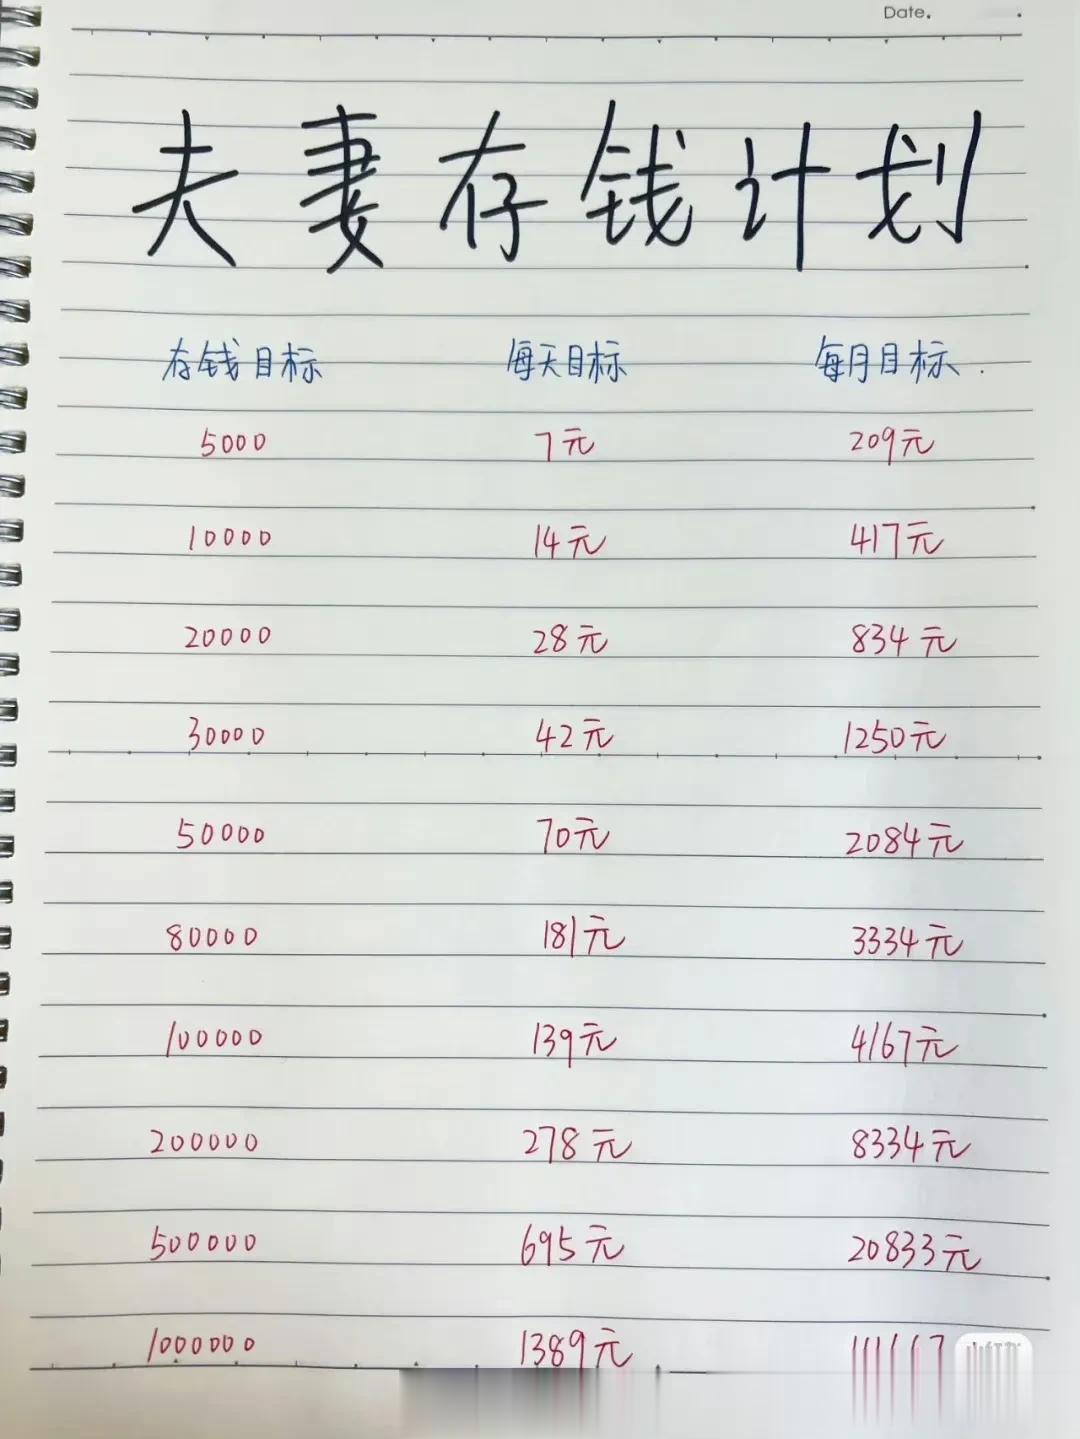 Date.
夫妻存钱计划
存钱目标 每天目标 每月目标.
5000 7元 209元
10000 14元 417元
20000 28元 834元
30000 42元 1250元
50000 70元 2084元
80000 181元 3334元
100000 139元 4167元
200000 278元 8334元
500000 695元 20833元
1000000 1389元